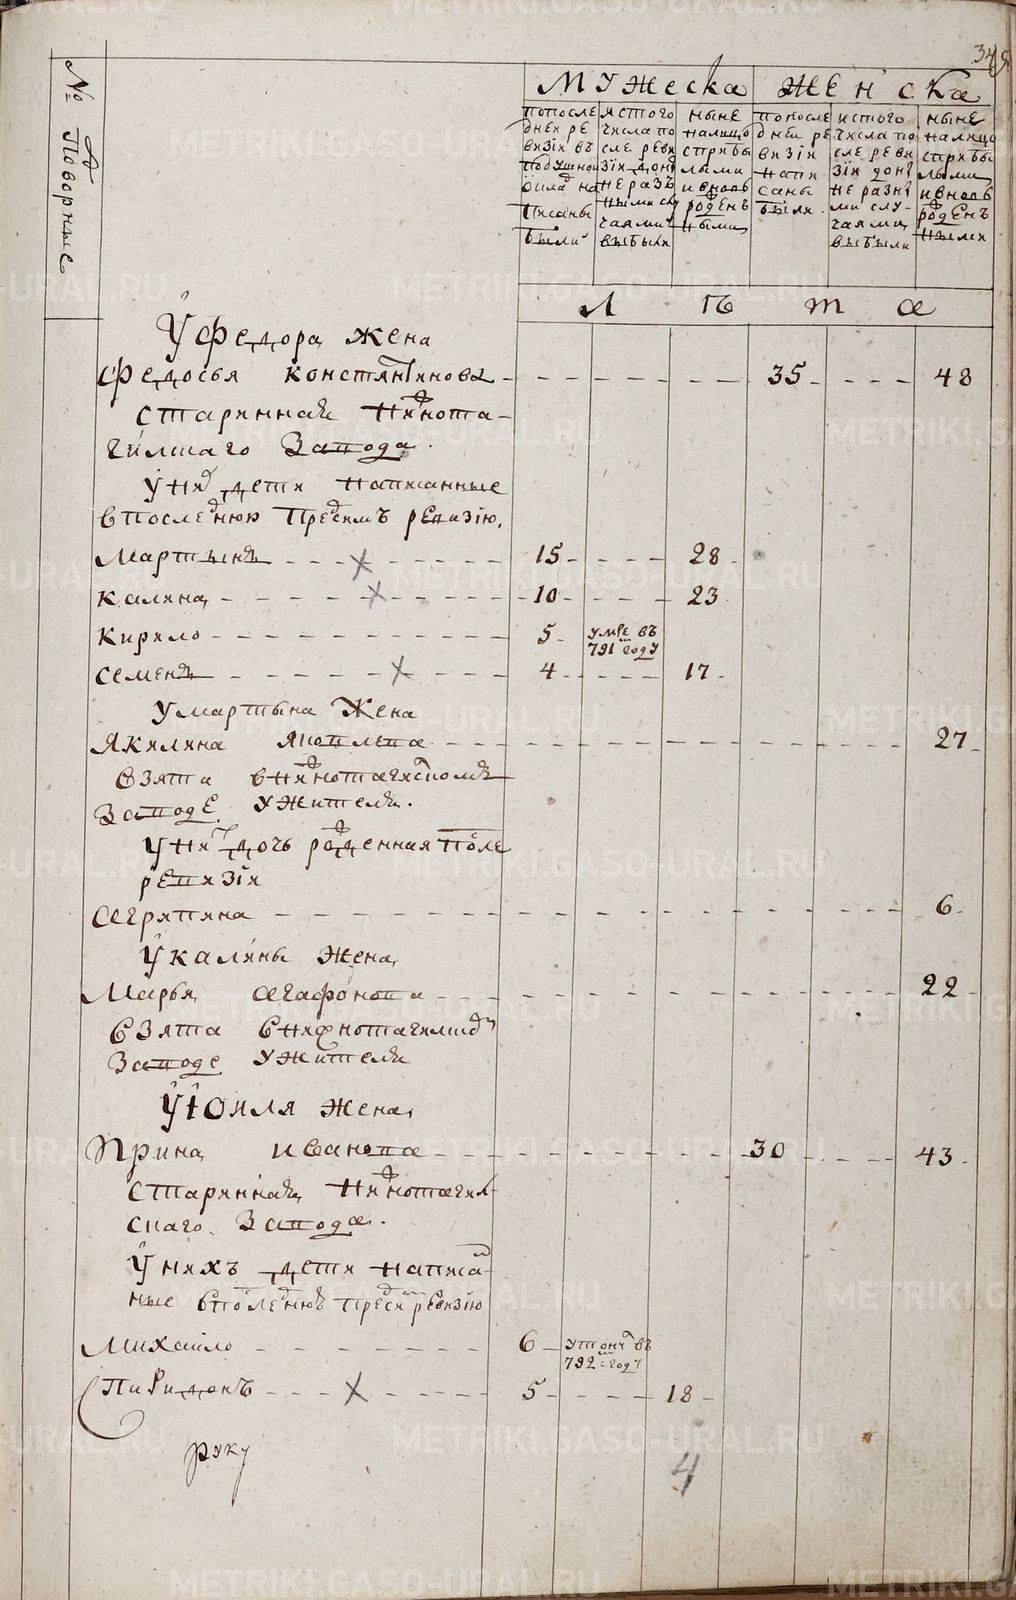 № Дворные
МУЖеска
ЖЕНска
попосле
дней ре
визіи въ
подушной
окладъ на
писаны
были
истого
числа по
сле реви
зіи доны
не разъ
ными слу
чаями
выбыли
ныне
налицо
сприбы
лыми
ивновь
рожденъ
ными
попосле
дней ре
визіи
напи
саны
были
истого
числа по
сле реви
зіи доны
не разны
ми слу-
чаями
выбыли
ныне
налицо
сприбы
лыми
ивновь
рожденъ
ными
Лѣта
У Федора жена
Федосья Константинова 35 48
старинная Нижнота-
гилскаго Завода
У них дети написанные
впоследнюю пред симъ ревизію,
Мартынъ 15 28
Калина 10 23
Кирило 5 умре въ 791м году
Семенъ 4 17
У Мартына Жена
Якилина Яковлева 27
взята вНижнотагилскомъ
Заводе у жителя.
У них дочь рожденная после
ревизіи
Агрипина 6
У Калины Жена
Марья Агафонова 22
взята внижнотагилском
Заводе у жителя
У Юиля Жена
Ирина Иванова 30 43
старинная Нижнотагил
скаго Завода.
У нихъ дети написа
ные впоследнюю пред сим ревизію
Михайло 6 утонул въ 792м году
Спиридонъ 5 18
руку
4
METRIKI.GASO-URAL.RU